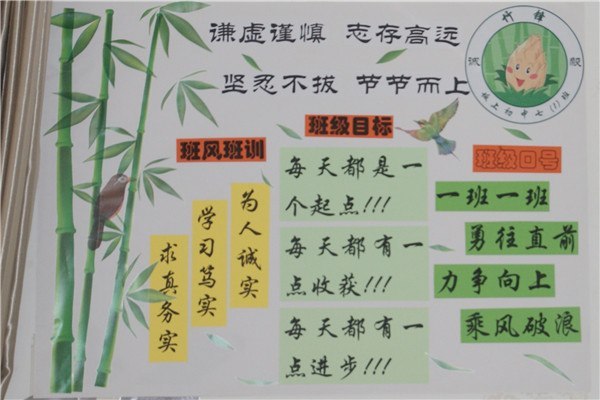 谦虚谨慎 志存高远
坚忍不拔 节节而上
竹
上初中七(1)班
班风班训
为人诚实
学习笃实
求真务实
班级目标
每天都是一
个起点!!!
每天都有一
点收获!!!
每天都有一
点进步!!!
班级口号
一班一班
勇往直前
力争向上
乘风破浪